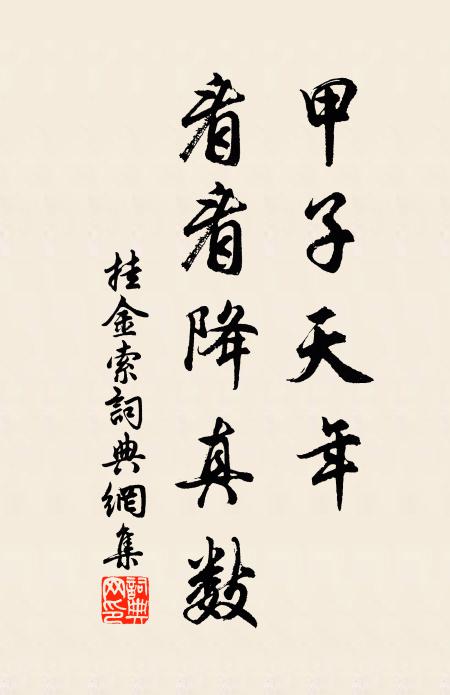 甲子天年
看看降真数
挂金索詞典網集
詞典網印